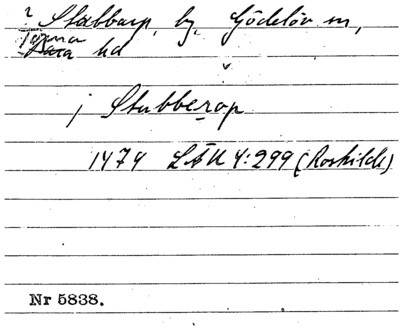 ? Stabbarp, by, Gödelöv sn,
Torna
Bara hd
j Stubberop
1474 LÄU 4:299 (Roskilde)
Nr 5838.